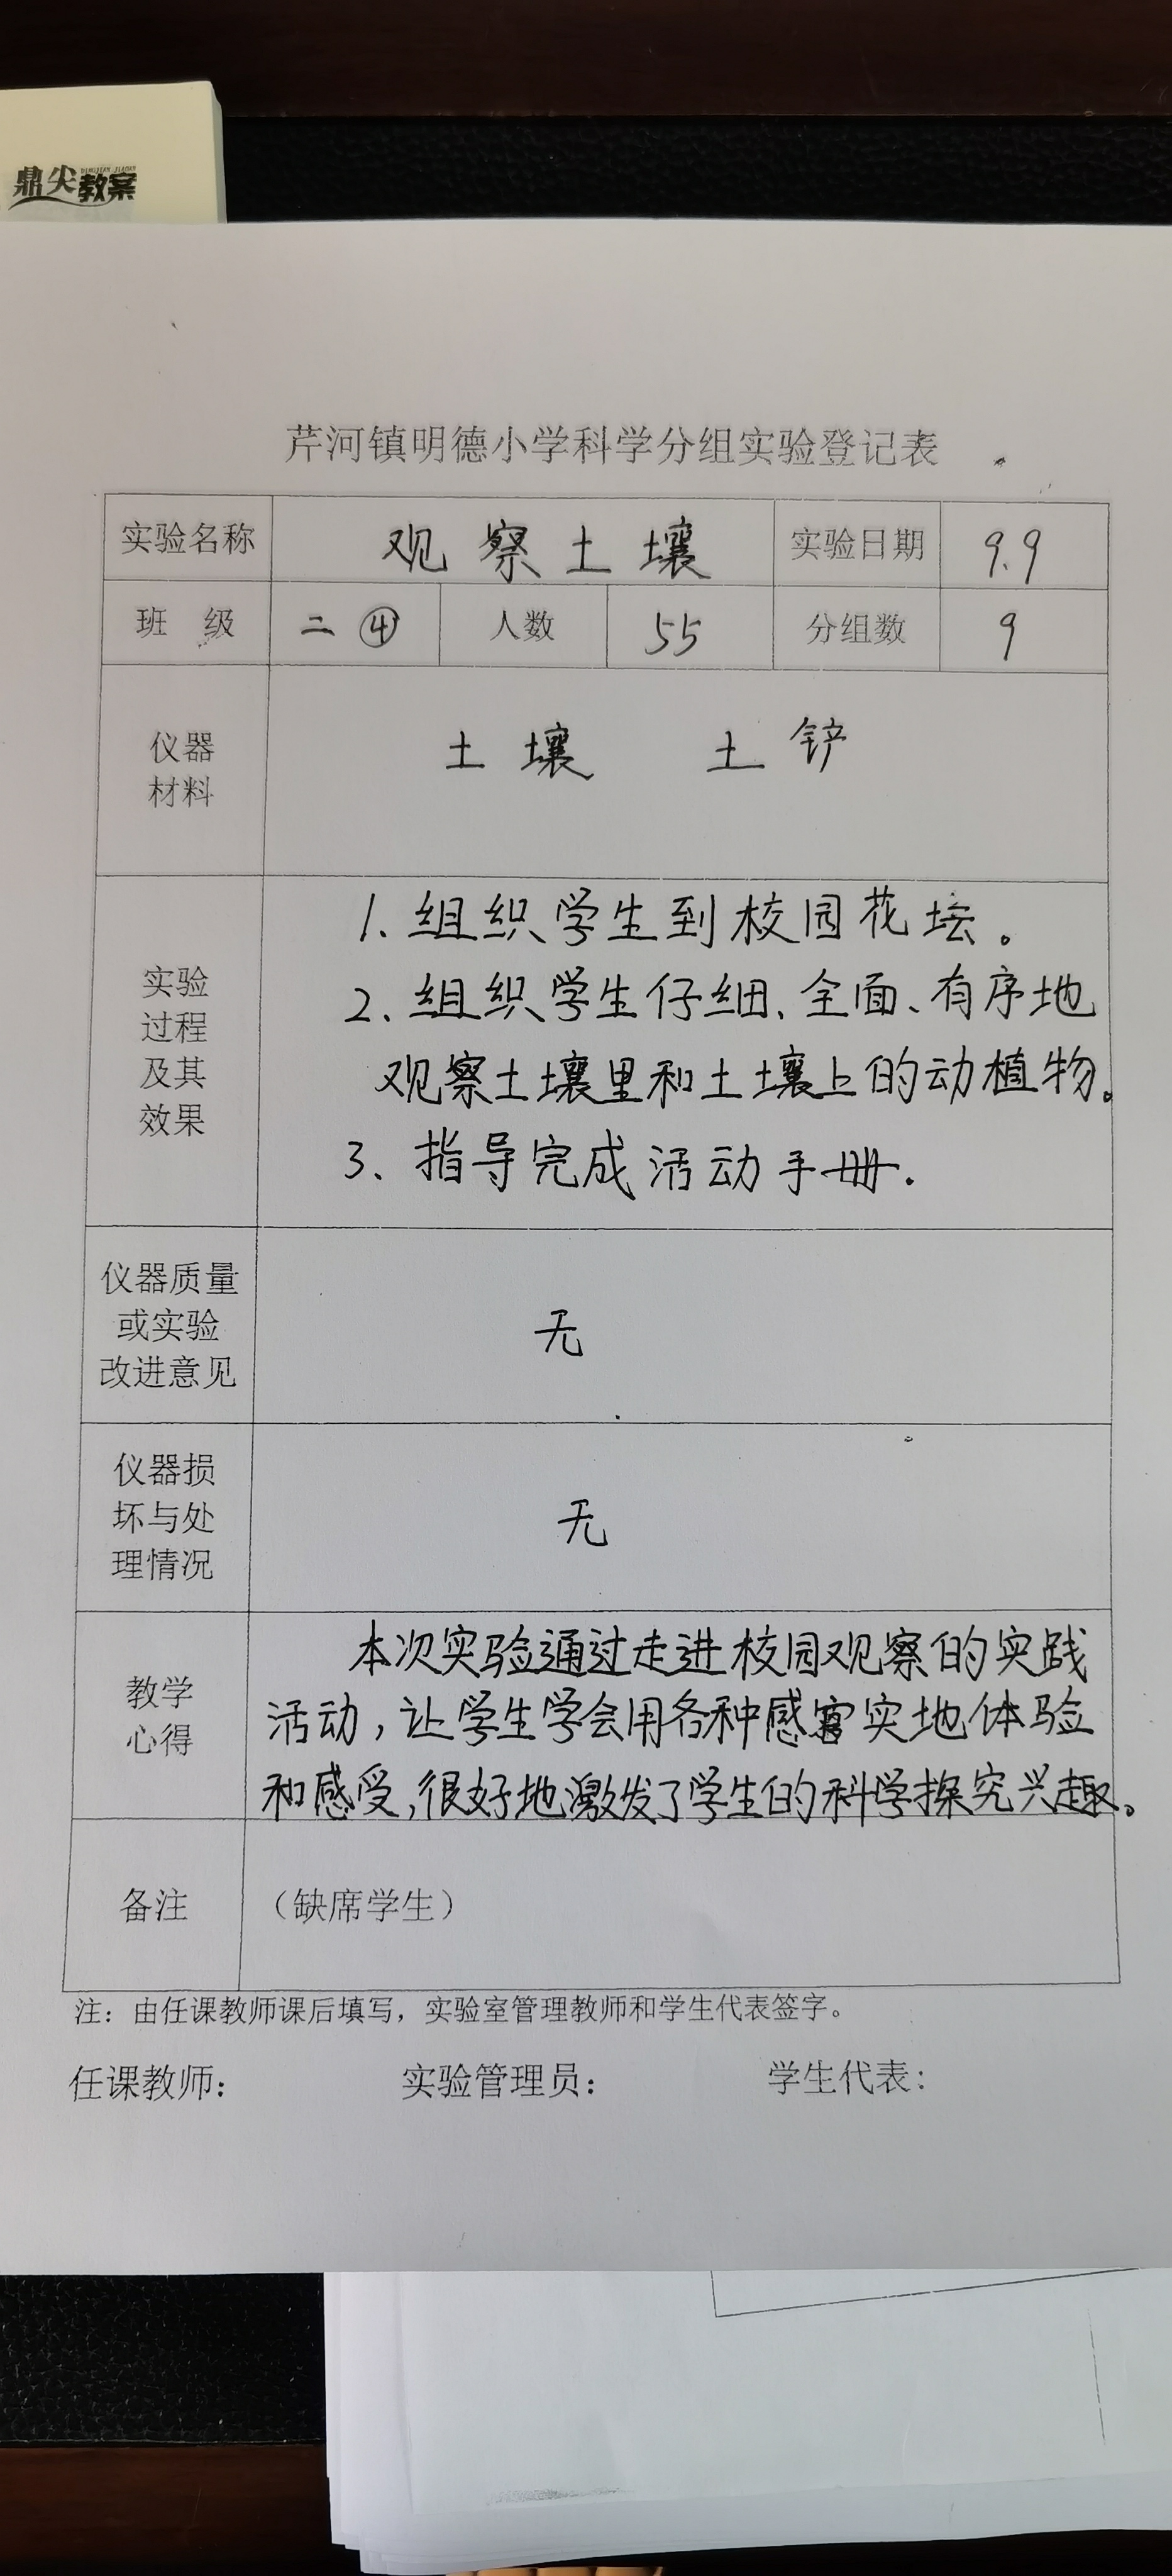 鼎尖教案
芹河镇明德小学科学分组实验登记表
实验名称 观察土壤 实验日期 9.9
班 级 二④ 人数 55 分组数 9
仪器
材料
土壤 土铲
实验
过程
及其
效果
1.组织学生到校园花坛。
2.组织学生仔细、全面、有序地
观察土壤里和土壤上的动植物。
3、指导完成活动手册.
仪器质量
或实验
改进意见
无
仪器损
坏与处
理情况
无
教学
心得
本次实验通过走进校园观察的实践
活动,让学生学会用各种感官实地体验
和感受,很好地激发了学生的科学探究兴趣。
备注 (缺席学生)
注:由任课教师课后填写,实验室管理教师和学生代表签字。
任课教师: 实验管理员: 学生代表: